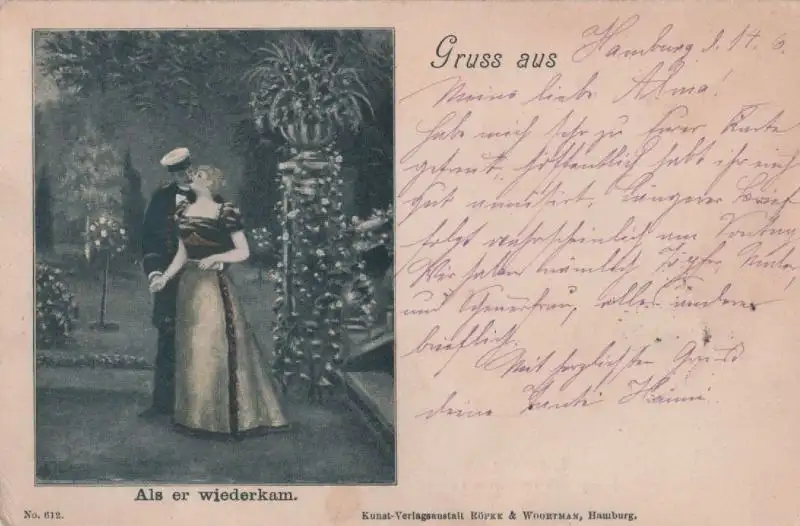 Gruss aus Hamburg d. 14. 6.
Meine liebe Alma!
Habe mich sehr zu Eurer Karte
gefreut, hoffentlich habt ihr euch
gut amüsirt. Längerer Brief
folgt wahrscheinlich am Sonntag
Wir haben nämlich Töpfer, Maler,
und Scheuerfrau, alles andere
brieflich.
Mit herzlichsten Gruss
deine Tante Hanni.
Als er wiederkam.
No. 612.
Kunst-Verlagsanstalt RÖPKE & WOORTMAN, Hamburg.